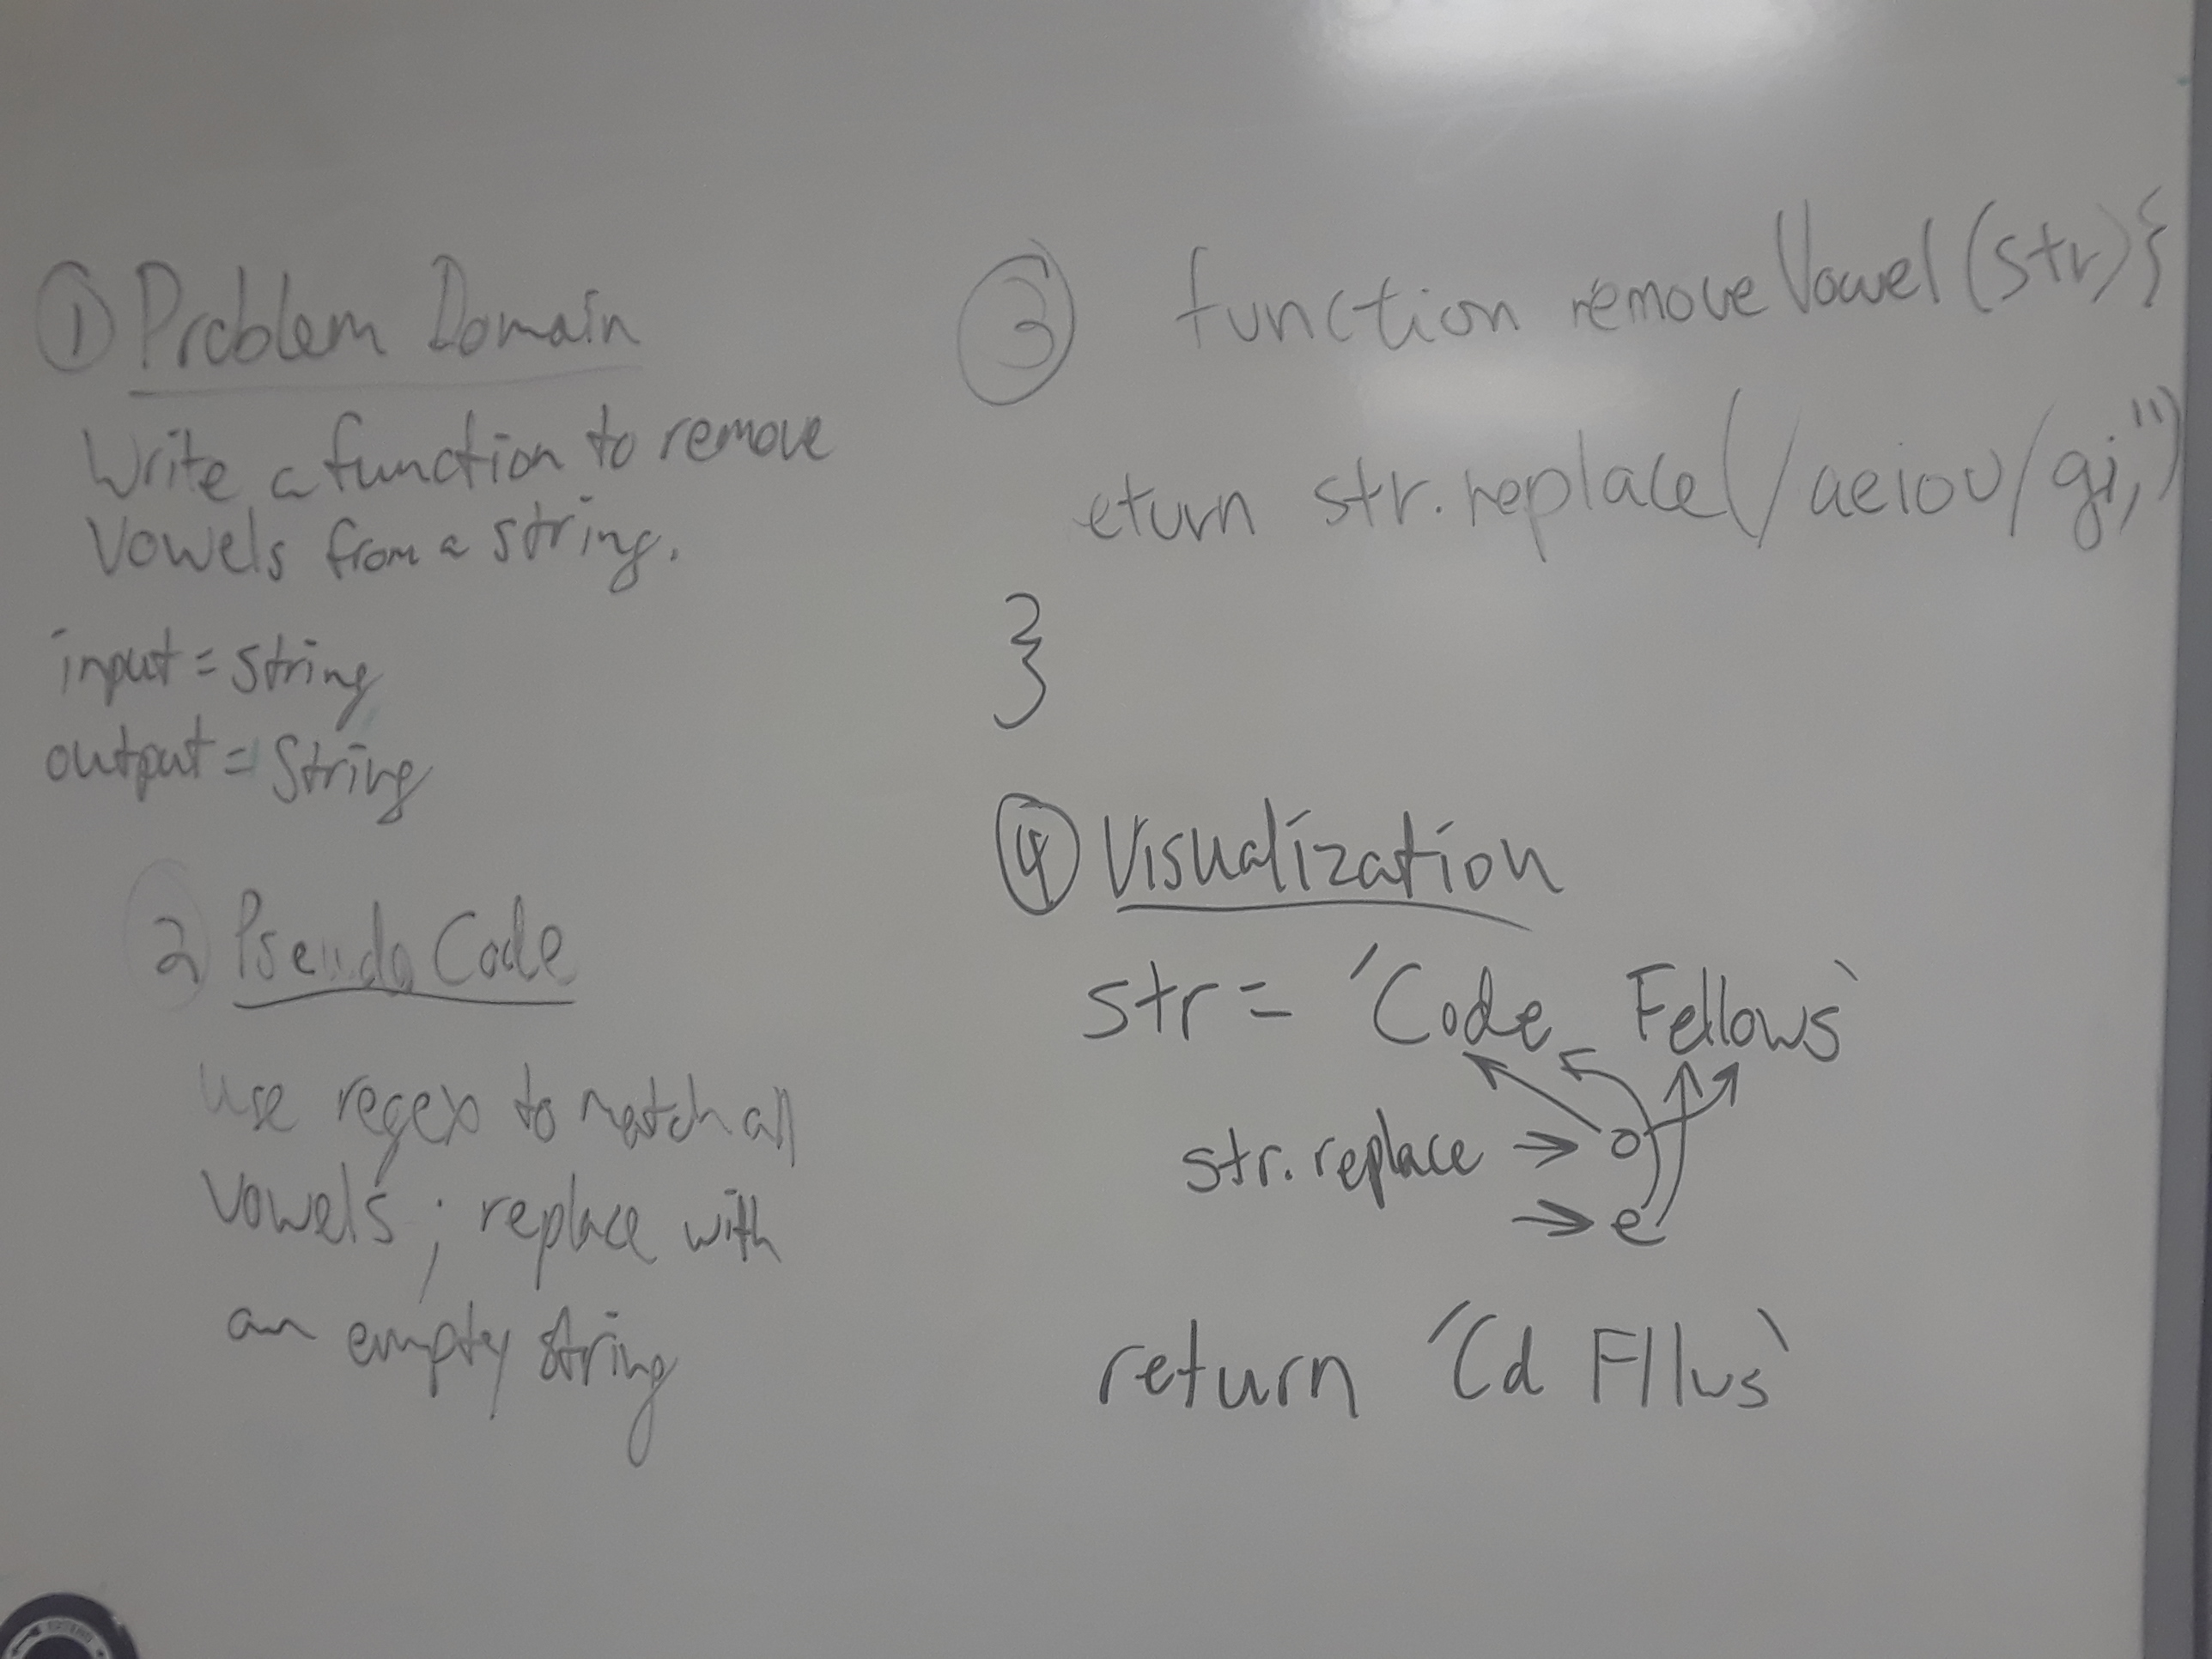 ① Problem Domain
Write a function to remove
Vowels from a string.
input = string
output = String
2 Pseudo Code
Use regex to match all
Vowels; replace with
an empty string
③ function removeVowel(str){
eturn str.replace(/aeiou/gi,'')
}
④ Visualization
str = 'Code Fellows'
str.replace → o
→ e
return 'Cd Fllws'